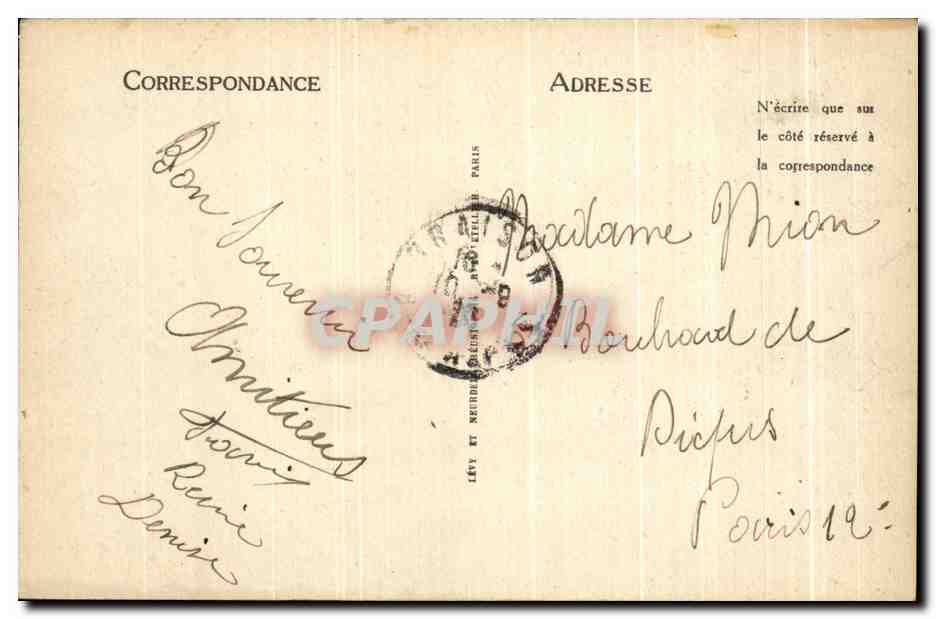 CORRESPONDANCE
ADRESSE
N'écrire que sur
le côté réservé à
la correspondance
Bon Souvenir
Amitiées
Reine
Denise
LÉVY ET NEURDEIN RÉUNIS PARIS
CPAPHIL
Madame Mion
Boulvard de
Picpus
Paris 12